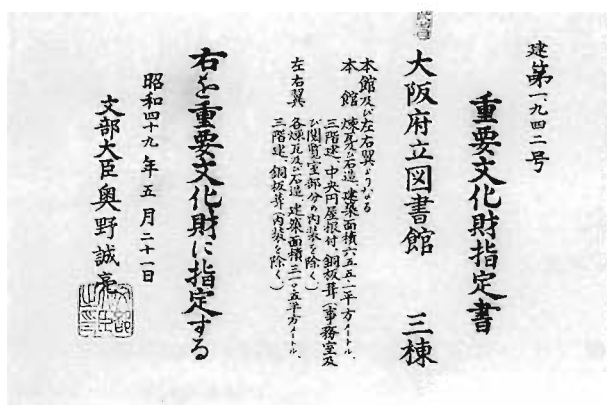 建第一、九四二号
重要文化財指定書
大阪府立図書館　三棟
本館及び左右翼よりなる
本館　煉瓦及び石造、建築面積六五五・一平方メートル、
三階建、中央円屋根付、銅板葺（事務室及
び閲覧室部分の内装を除く。）
左右翼　各煉瓦及び石造、建築面積三一〇・五平方メートル、
三階建、銅板葺（内装を除く。）
右を重要文化財に指定する
昭和四十九年五月二十一日
文部大臣奥野誠亮